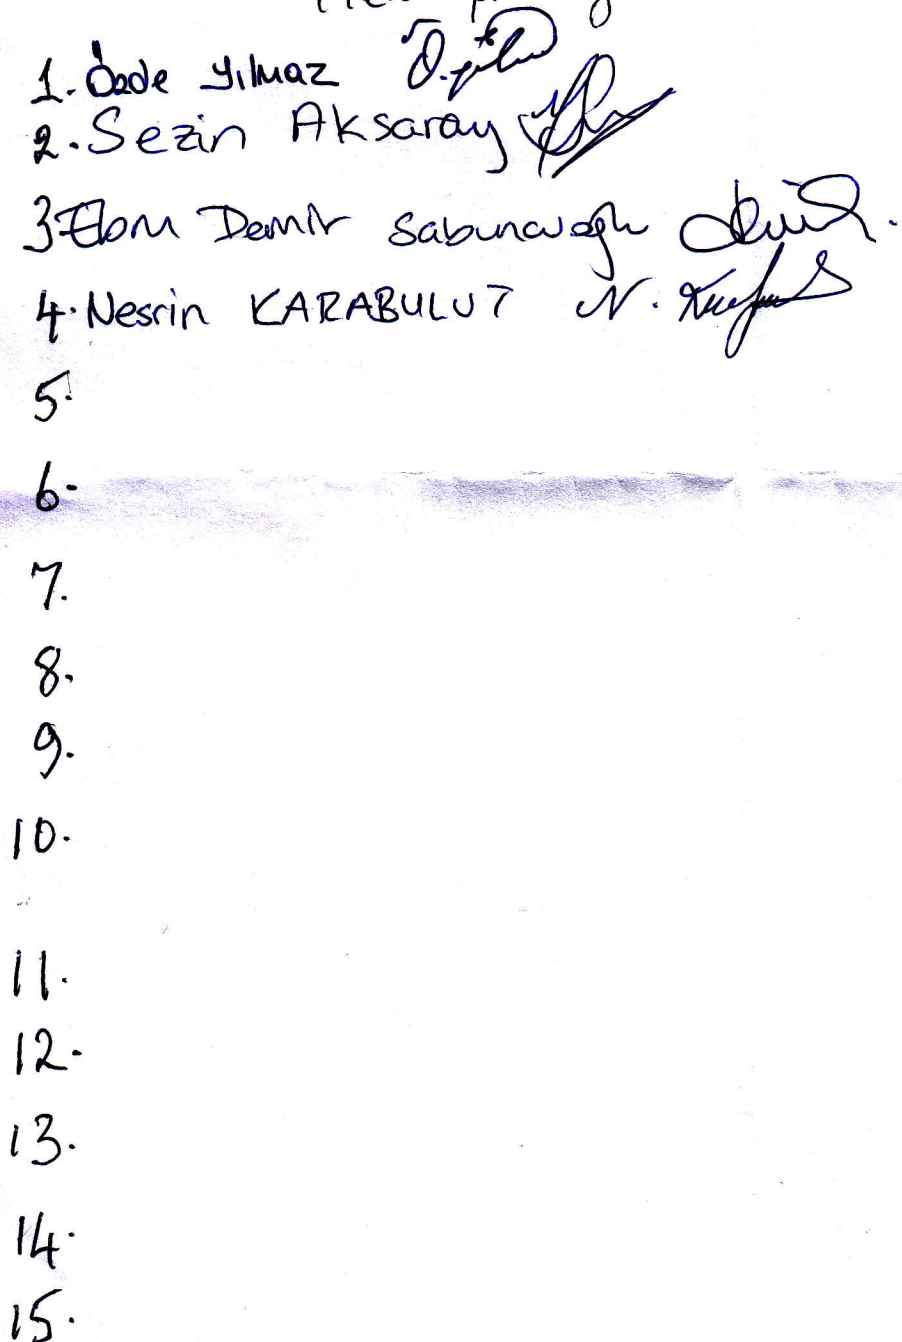 1. Özde Yılmaz
2. Sezin Aksaray
3 Ebru Demir Sabuncuoğlu
4. Nesrin KARABULUT N.
5.
6.
7.
8.
9.
10.
11.
12.
13.
14.
15.